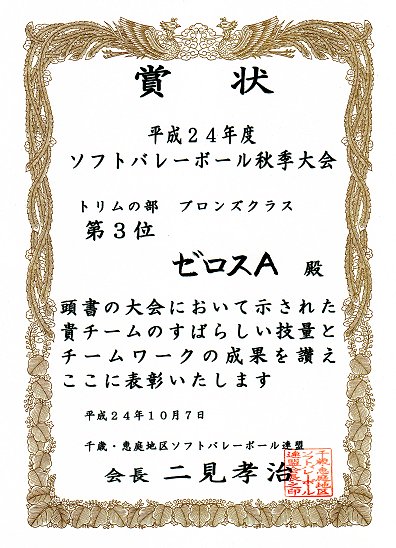 賞状
平成24年度
ソフトバレーボール秋季大会
トリムの部 ブロンズクラス
第3位
ゼロスA 殿
頭書の大会において示された
貴チームのすばらしい技量と
チームワークの成果を讃え
ここに表彰いたします
平成24年10月7日
千歳・恵庭地区ソフトバレーボール連盟
会長 二見孝治
千歳恵庭地区
ソフトバレーボール
連盟会長之印